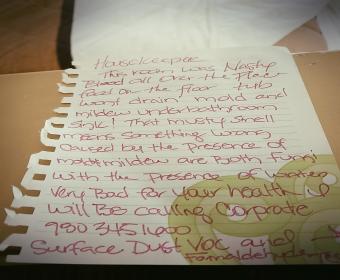 Housekeeper
This room was Nasty
Blood all over the place
food on the floor tub
wont drain mold and
mildew under bathroom
sink! That musty smell
means something wrong
Caused by the presence of
mold+mildew are Both fungi
with the presence of water
Very Bad for your health
will BB calling Corprate
Surface Dust VOC and
Formaldehyde